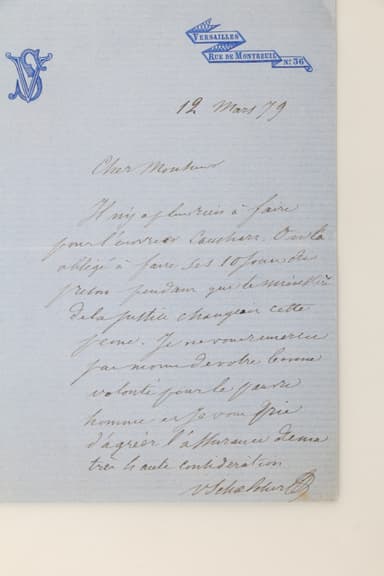 VS
VERSAILLES
RUE DE MONTREUIL
No 36
12 Mars 79
Cher Monsieur
Il n'y a plus rien à faire
pour l'ouvrier Cauchard. On l'a
obligé à faire ses 10 jours de
prison pendant que le ministère
de la justice changeait cette
peine. Je ne vous remercie
pas moins de votre bonne
volonté pour le pauvre
homme et je vous prie
d'agréer l'assurance de ma
très haute considération
V Schoelcher